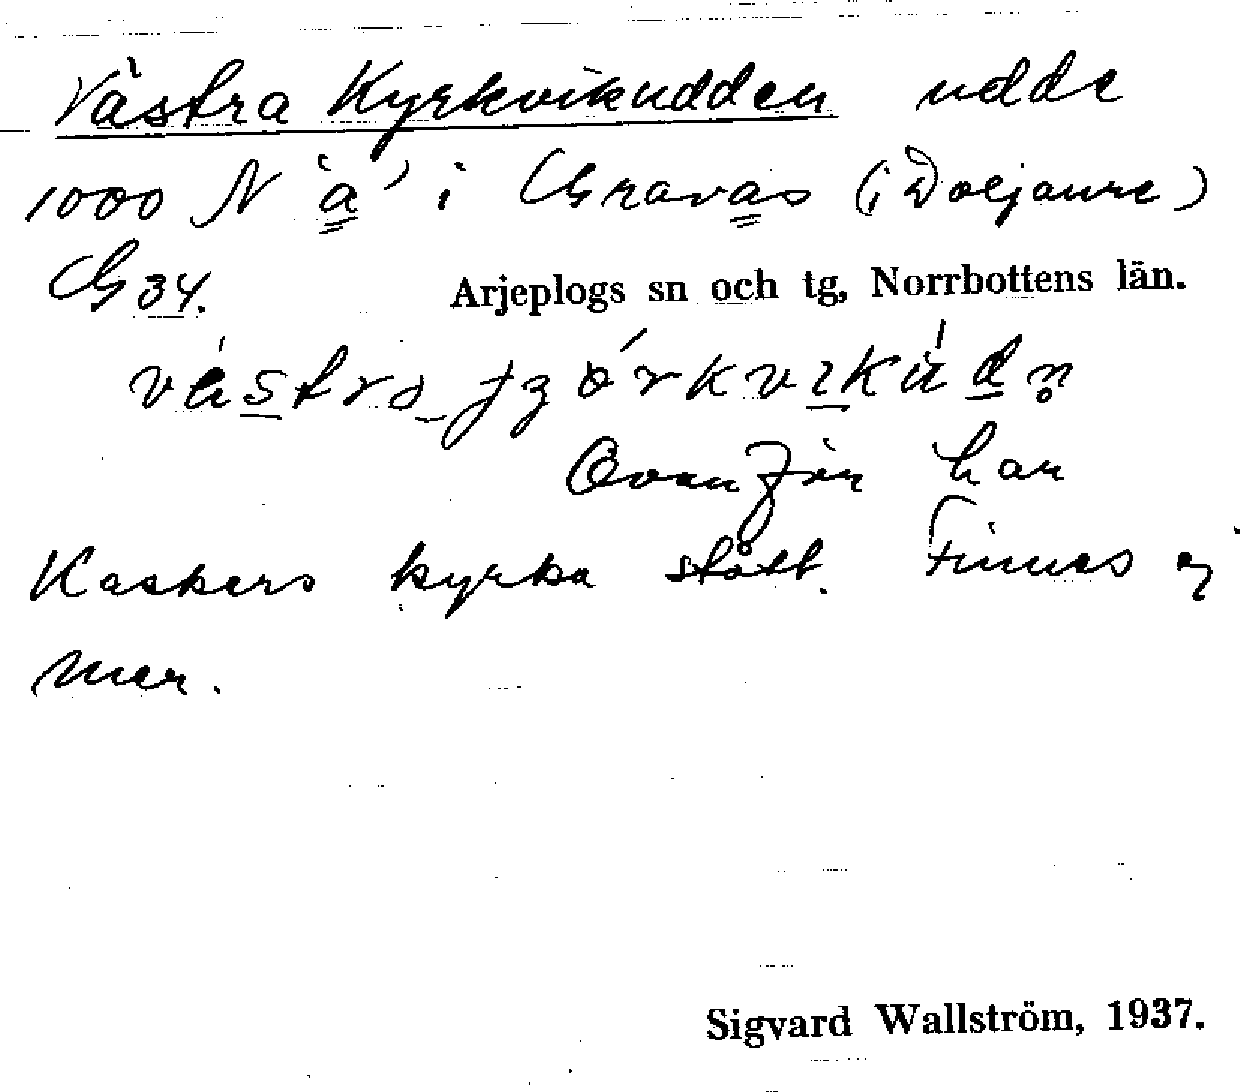 Västra Kyrkvikudden udde
1000 N 'a' i Gravas (i Doljaure)
G 34.
Arjeplogs sn och tg, Norrbottens län.
Ovanför har
Kaskers kyrka stått. Finnes ej
mer.
Sigvard Wallström, 1937.